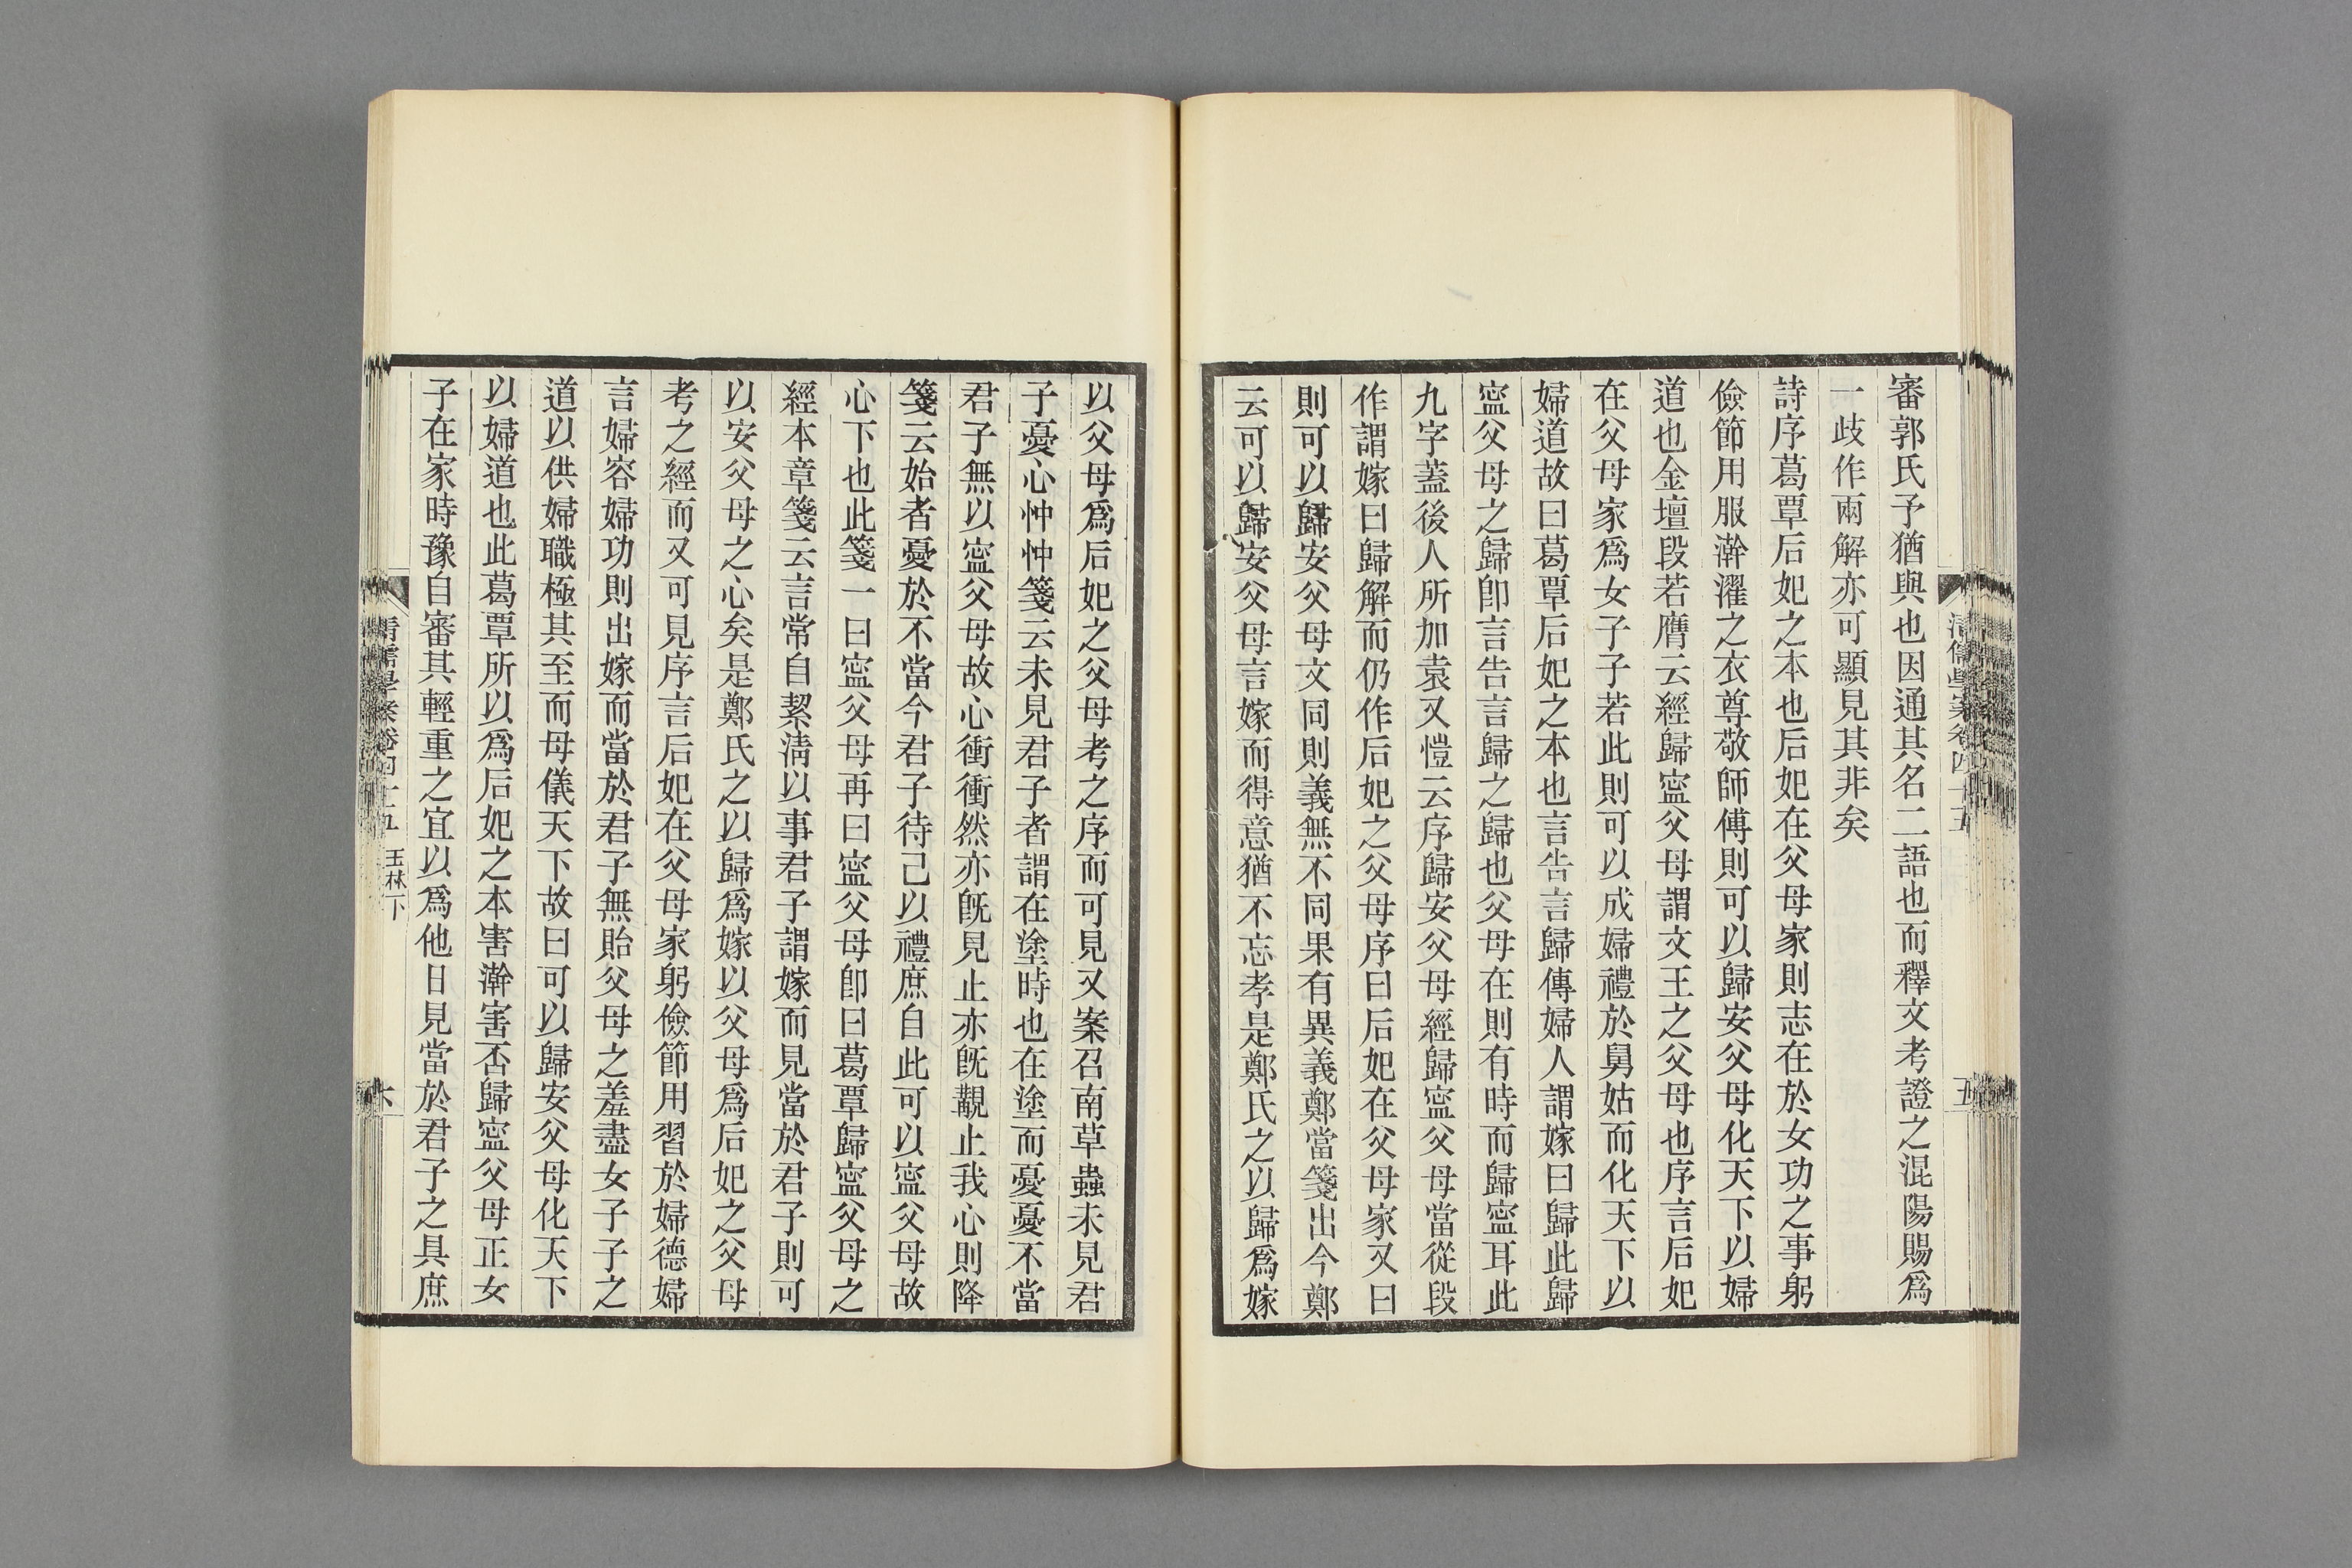 審郭氏予猶與也因通其名二語也而釋文考證之混陽賜爲
一歧作兩解亦可顯見其非矣
詩序葛覃后妃之本也后妃在父母家則志在於女功之事躬
儉節用服澣濯之衣尊敬師傅則可以歸安父母化天下以婦
道也金壇段若膺云經歸寍父母謂文王之父母也序言后妃
在父母家爲女子子若此則可以成婦禮於舅姑而化天下以
婦道故曰葛覃后妃之本也言告言歸傳婦人謂嫁曰歸此歸
寍父母之歸卽言告言歸之歸也父母在則有時而歸寍耳此
九字蓋後人所加袁又愷云序歸安父母經歸寍父母當從段
作謂嫁曰歸解而仍作后妃之父母序曰后妃在父母家又曰
則可以歸安父母文同則義無不同果有異義鄭當箋出今鄭
云可以歸安父母言嫁而得意猶不忘孝是鄭氏之以歸爲嫁
清儒學案卷四十五
五
以父母爲后妃之父母考之序而可見又案召南草蟲未見君
子憂心忡忡箋云未見君子者謂在塗時也在塗而憂憂不當
君子無以寍父母故心衝衝然亦旣見止亦旣觀止我心則降
箋云始者憂於不當今君子待己以禮庶自此可以寍父母故
心下也此箋一曰寍父母再曰寍父母卽曰葛覃歸寍父母之
經本章箋云言常自絜淸以事君子謂嫁而見當於君子則可
以安父母之心矣是鄭氏之以歸爲嫁以父母爲后妃之父母
考之經而又可見序言后妃在父母家躬儉節用習於婦德婦
言婦容婦功則出嫁而當於君子無貽父母之羞盡女子子之
道以供婦職極其至而母儀天下故曰可以歸安父母化天下
以婦道也此葛覃所以爲后妃之本害澣害否歸寍父母正女
子在家時豫自審其輕重之宜以爲他日見當於君子之具庶
清儒學案卷四十五
玉林下
六